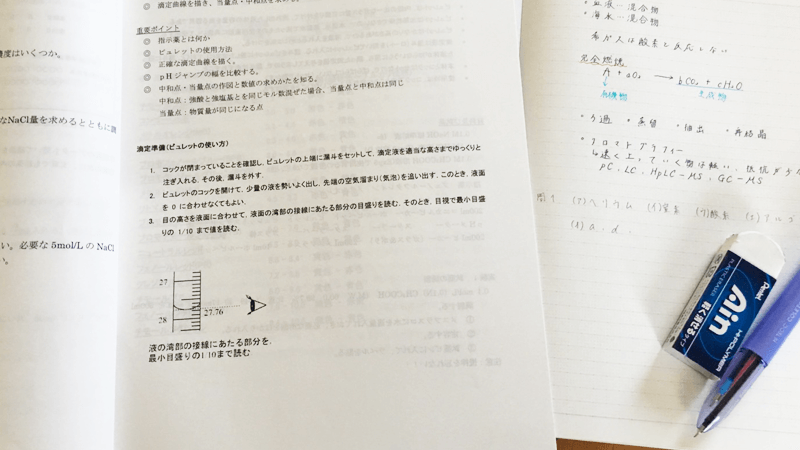 滴定曲線を描き、当量点・中和点を求め
重要ポイント
◎ 指示薬とは何か
◎ ビュレットの使用方法
◎ 正確な滴定曲線を描く。
◎ pHジャンプの幅を比較する。
◎ 中和点・当量点の作図と数値の求めかたを知る。
中和点：強酸と強塩基とを同じモル数混ぜた場合、当量点と中和点は同じ
当量点：物質量が同じになる点
滴定準備（ビュレットの使い方）
1. コックが閉まっていることを確認し、ビュレットの上端に漏斗をセットして、滴定液を適当な高さまでゆっくりと
注ぎ入れる．その後，漏斗を外す．
2. ビュレットのコックを開けて，少量の液を勢いよく出し，先端の空気溜まり（気泡）を追い出す．このとき，液面
を 0 に合わせなくてもよい．
3. 目の高さを液面に合わせて，液面の湾部の接線にあたる部分の目盛りを読む．そのとき，目視で最小目盛
りの 1/10 まで値を読む．
27
27.76
28
液の湾部の接線にあたる部分を，
最小目盛りの1/10まで読む
濃度はいくつか。
なNaCl量を求めるとともに調
い。必要な 5mol/L の NaCl
い。
・血液－混合物
・海水－混合物
希ガスは酸素と反応しない
完全燃焼
A + aO₂ → bCO₂ + cH₂O
有機物
生成物
・ろ過 ・蒸留 ・抽出 ・再結晶
・クロマトグラフィー
PC, LC, HPLC-MS, GC-MS
問1. (ア)ヘリウム (イ)窒素 (ウ)酸素
(1) a, d
Pentel
Ain
軽く消せるタイプ
HI-POLYMER
PLASTIC ERASER